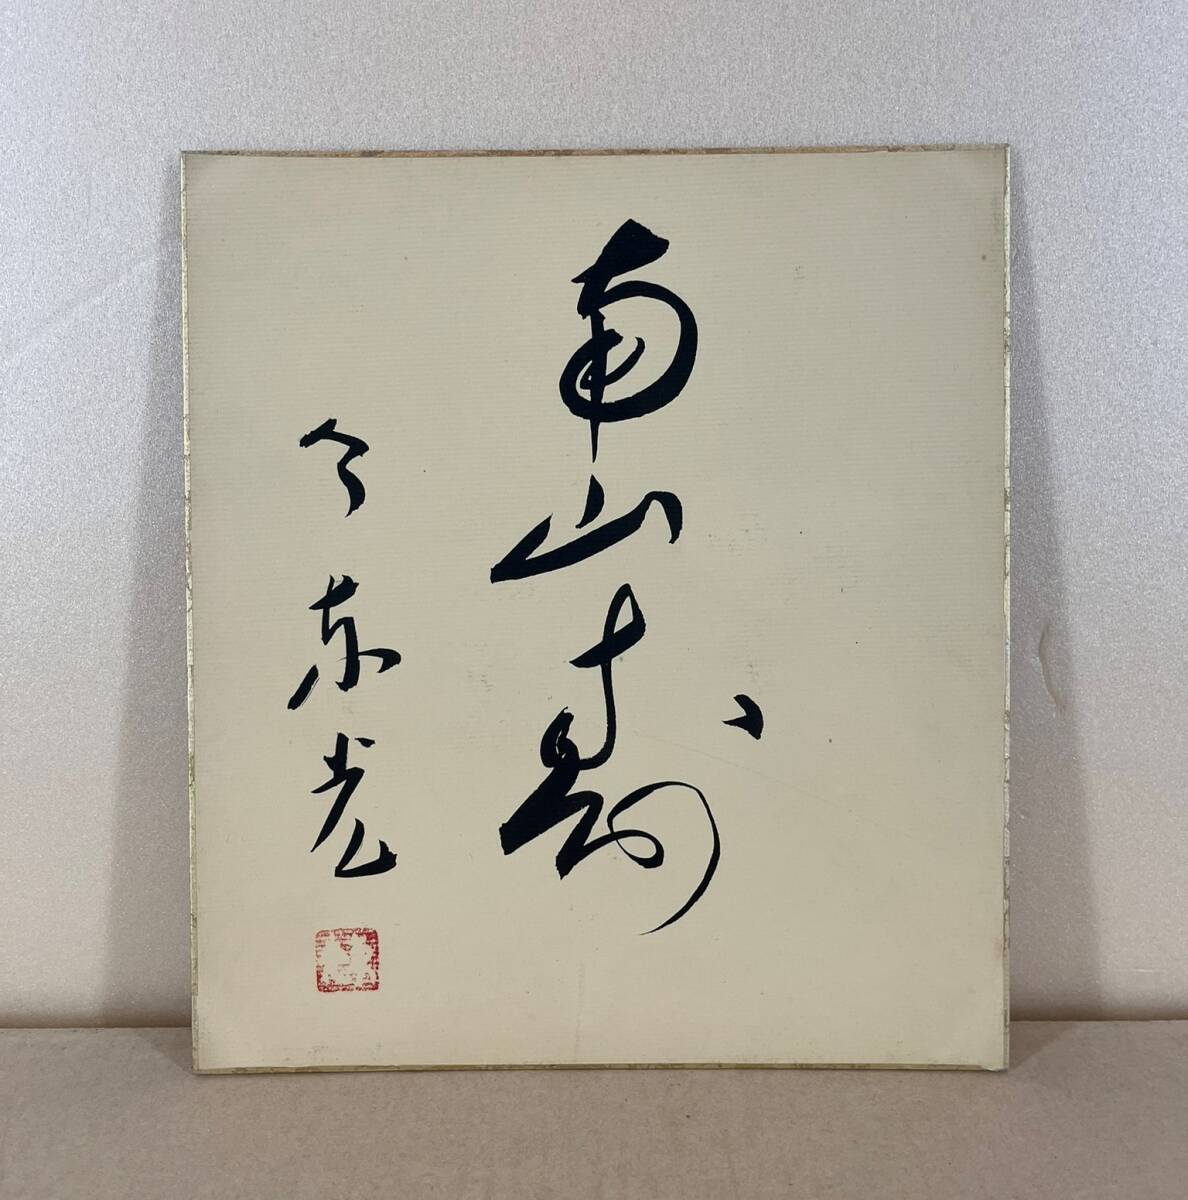 南山壽
今東光